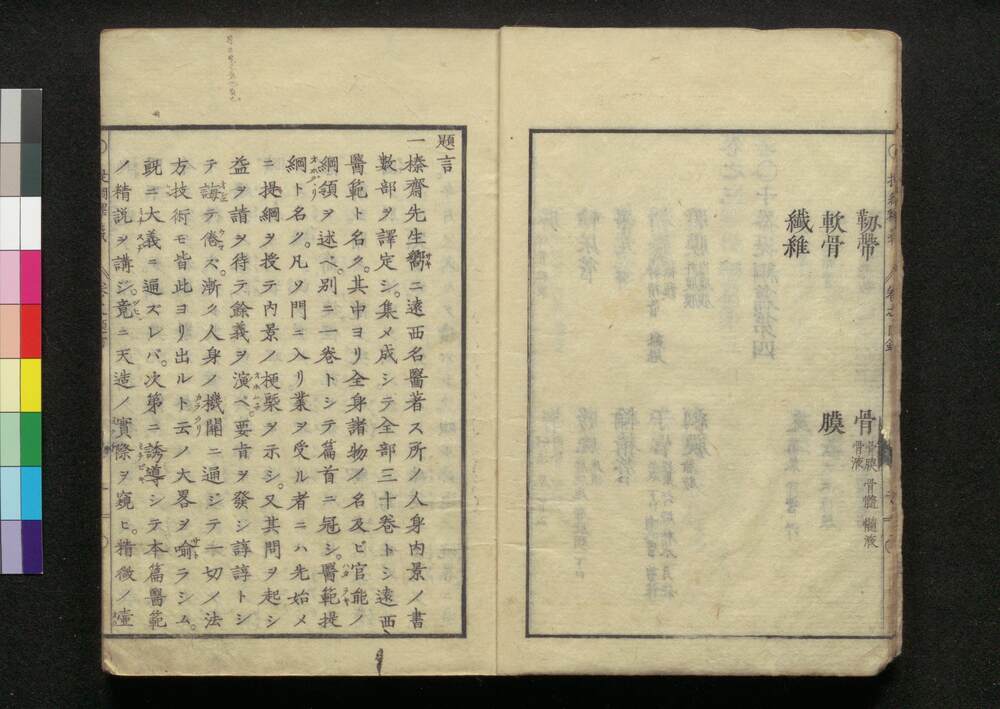 靱帯
骨
骨膜 骨髓 髄液
骨液
軟骨
膜
纎維
題言
一榛齋先生嚮ニ遠西名醫著ス所ノ人身内景ノ書
數部ヲ譯定シ。集メ成シテ全部三十卷トシ遠西
醫範ト名ク。其中ヨリ全身諸物ノ名及ビ官能ノ
綱領ヲ述ベ。別ニ一卷トシテ篇首ニ冠シ。醫範提
綱ト名ク。凡ソ門ニ入リ業ヲ受ル者ニハ先始メ
ニ提綱ヲ授テ内景ノ梗槩ヲ示シ。又其問ヲ起シ
益ヲ請ヲ待テ餘義ヲ演ベ。要旨ヲ發シ諄諄トシ
テ誨テ倦ズ。漸ク人身ノ機關ニ通ジテ一切ノ法
方技術モ皆此ヨリ出ルト云ノ大畧ヲ喩ラシム。
既ニ大義ニ通ズレバ。次第ニ誘導シテ本篇醫範
ノ精説ヲ講ジ。竟ニ天造ノ實際ヲ窺ヒ。精微ノ壼